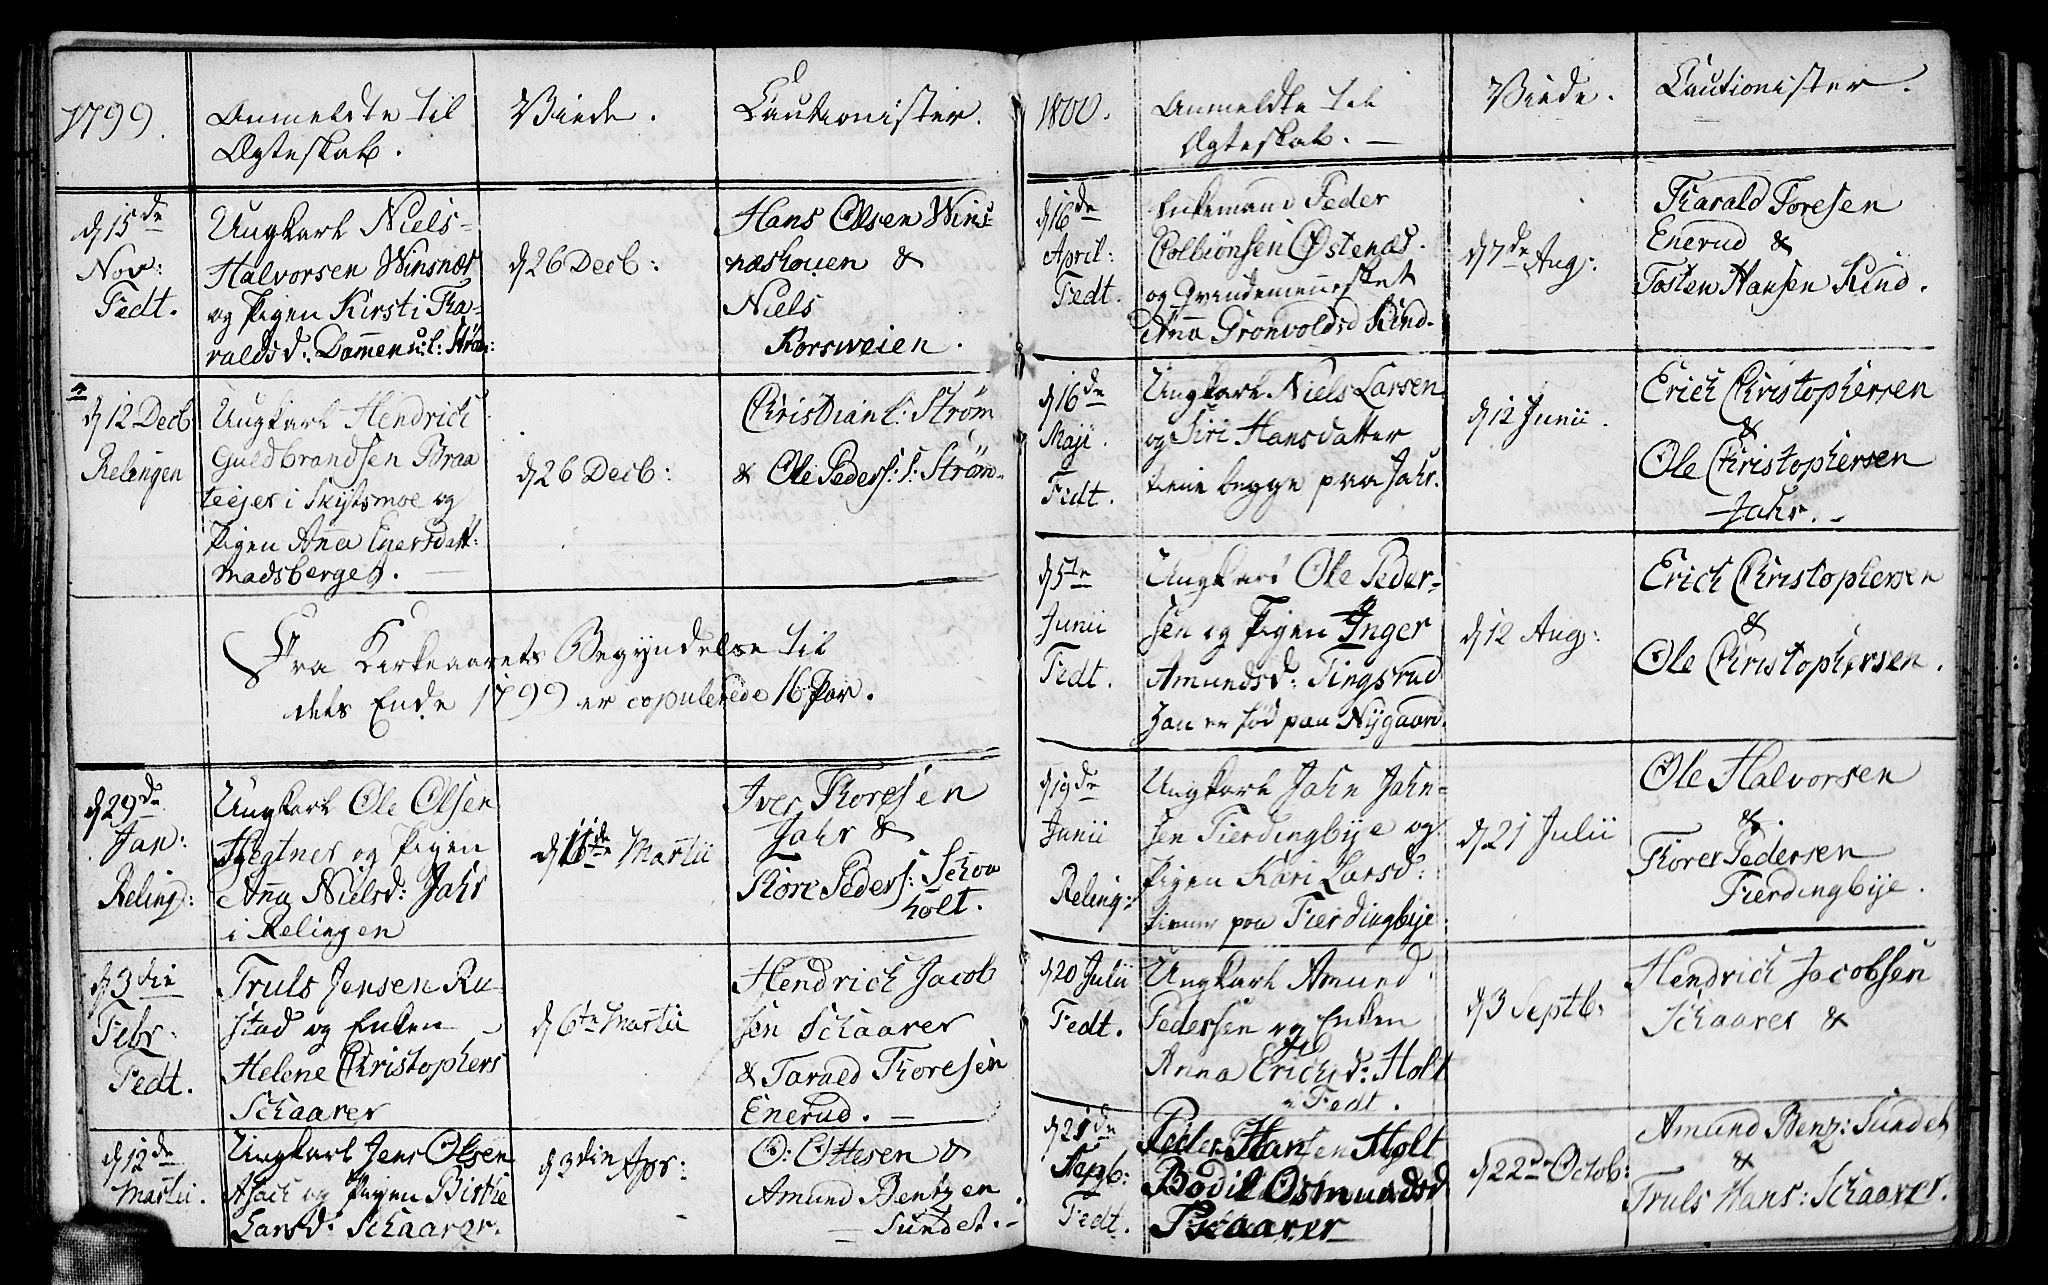 1799.
Anmeldte til
Ægteskab.
Viede.
Cautionister.
d 15de
Nov:
Fedt.
Ungkarl Niels
Halvorsen Winsnæs
og Pigen Kirsti Tha-
raldsd: Dammen u: l: Ström:
d 26 Decb:
Hans Olsen Wins
næshouen &
Niels
Korsweien.
d 12 Decb
Relingen
Ungkarl Hendrich
Guldbrandsen Braa
teejer i Skÿtsmoe og
Pigen Anna Enersdatt:
Madsberget.
d 26 Decb:
Christian l: Strøm
& Ole Peders: s: Strøm.
Fra Kirkeaarets Begÿndelse til
dets Ende 1799 er copulerede 16 Par.
d 29de
Jan:
Reling:
Ungkarl Ole Olsen
Hegtner og Pigen
Anna Nielsd: Jahr
i Relingen
Martii
Iver Thoresen
Jahr &
Thore Peders: Schou
holt.
d 3die
Febr:
Fedt.
Truls Jensen Ru-
stad og Enken
Helene Christophers
Schaarer
d 6te Martii
Hendrich Jacob
sen Schaarer
& Tarald Thoresen
Enerud.
d 12de
Martii.
Ungkarl Jens Olsen
Asach og Pigen Birthe
Larsd: Schaarer.
d 3die Apr:
O: Ottesen &
Amund Bentzen
Sundet.
1800.
Anmeldte til
Ægteskab.
Viede.
Cautionister.
d 16de
April:
Fedt.
Enkemand Peder
Colbiönsen Østenæs.
og Qvindemennesket
Anna Gronvoldsd Kind.
d 7de Aug:
Tharald Toresen
Enerud &
Tosten Hansen Kind.
d 16de
Maji.
Fedt.
Ungkarl Niels Larsen
og Siri Hansdatter
tiene begge paa Jahr.
d 12 Junii.
Erich Christophersen
&
Ole Christophersen
Jahr.
d 5te
Junii
Fedt.
Ungkarl Ole Peder-
sen og Pigen Inger
Amundsd: Tingsrud
han er fød paa Nÿgaard.
d 12 Aug:
Erich Christophersen
&
Ole Christophersen.
d 19de
Junii
Reling:
Ungkarl Jahn Jahn-
sen Fierdingbÿe og
Pigen Kari Larsd:
tiener paa Fierdingbÿe.
d 21 Julii
Ole Halvorsen
&
Thorer Pedersen
Fierdingbÿe.
d 20 Julii
Fedt.
Ungkarl Amund
Pedersen og Enken
Anna Erichsd: Holt
i Fedt.
d 3 Septb:
Hendrich Jacobsen
Schaarer &
d 21de
Fedt.
Peder Hansen Holt
Bodil Osmundsd
Schaarer
d 22de Octob:
Amund Benz: Sundet
&
Truls Hans: Schaarer.